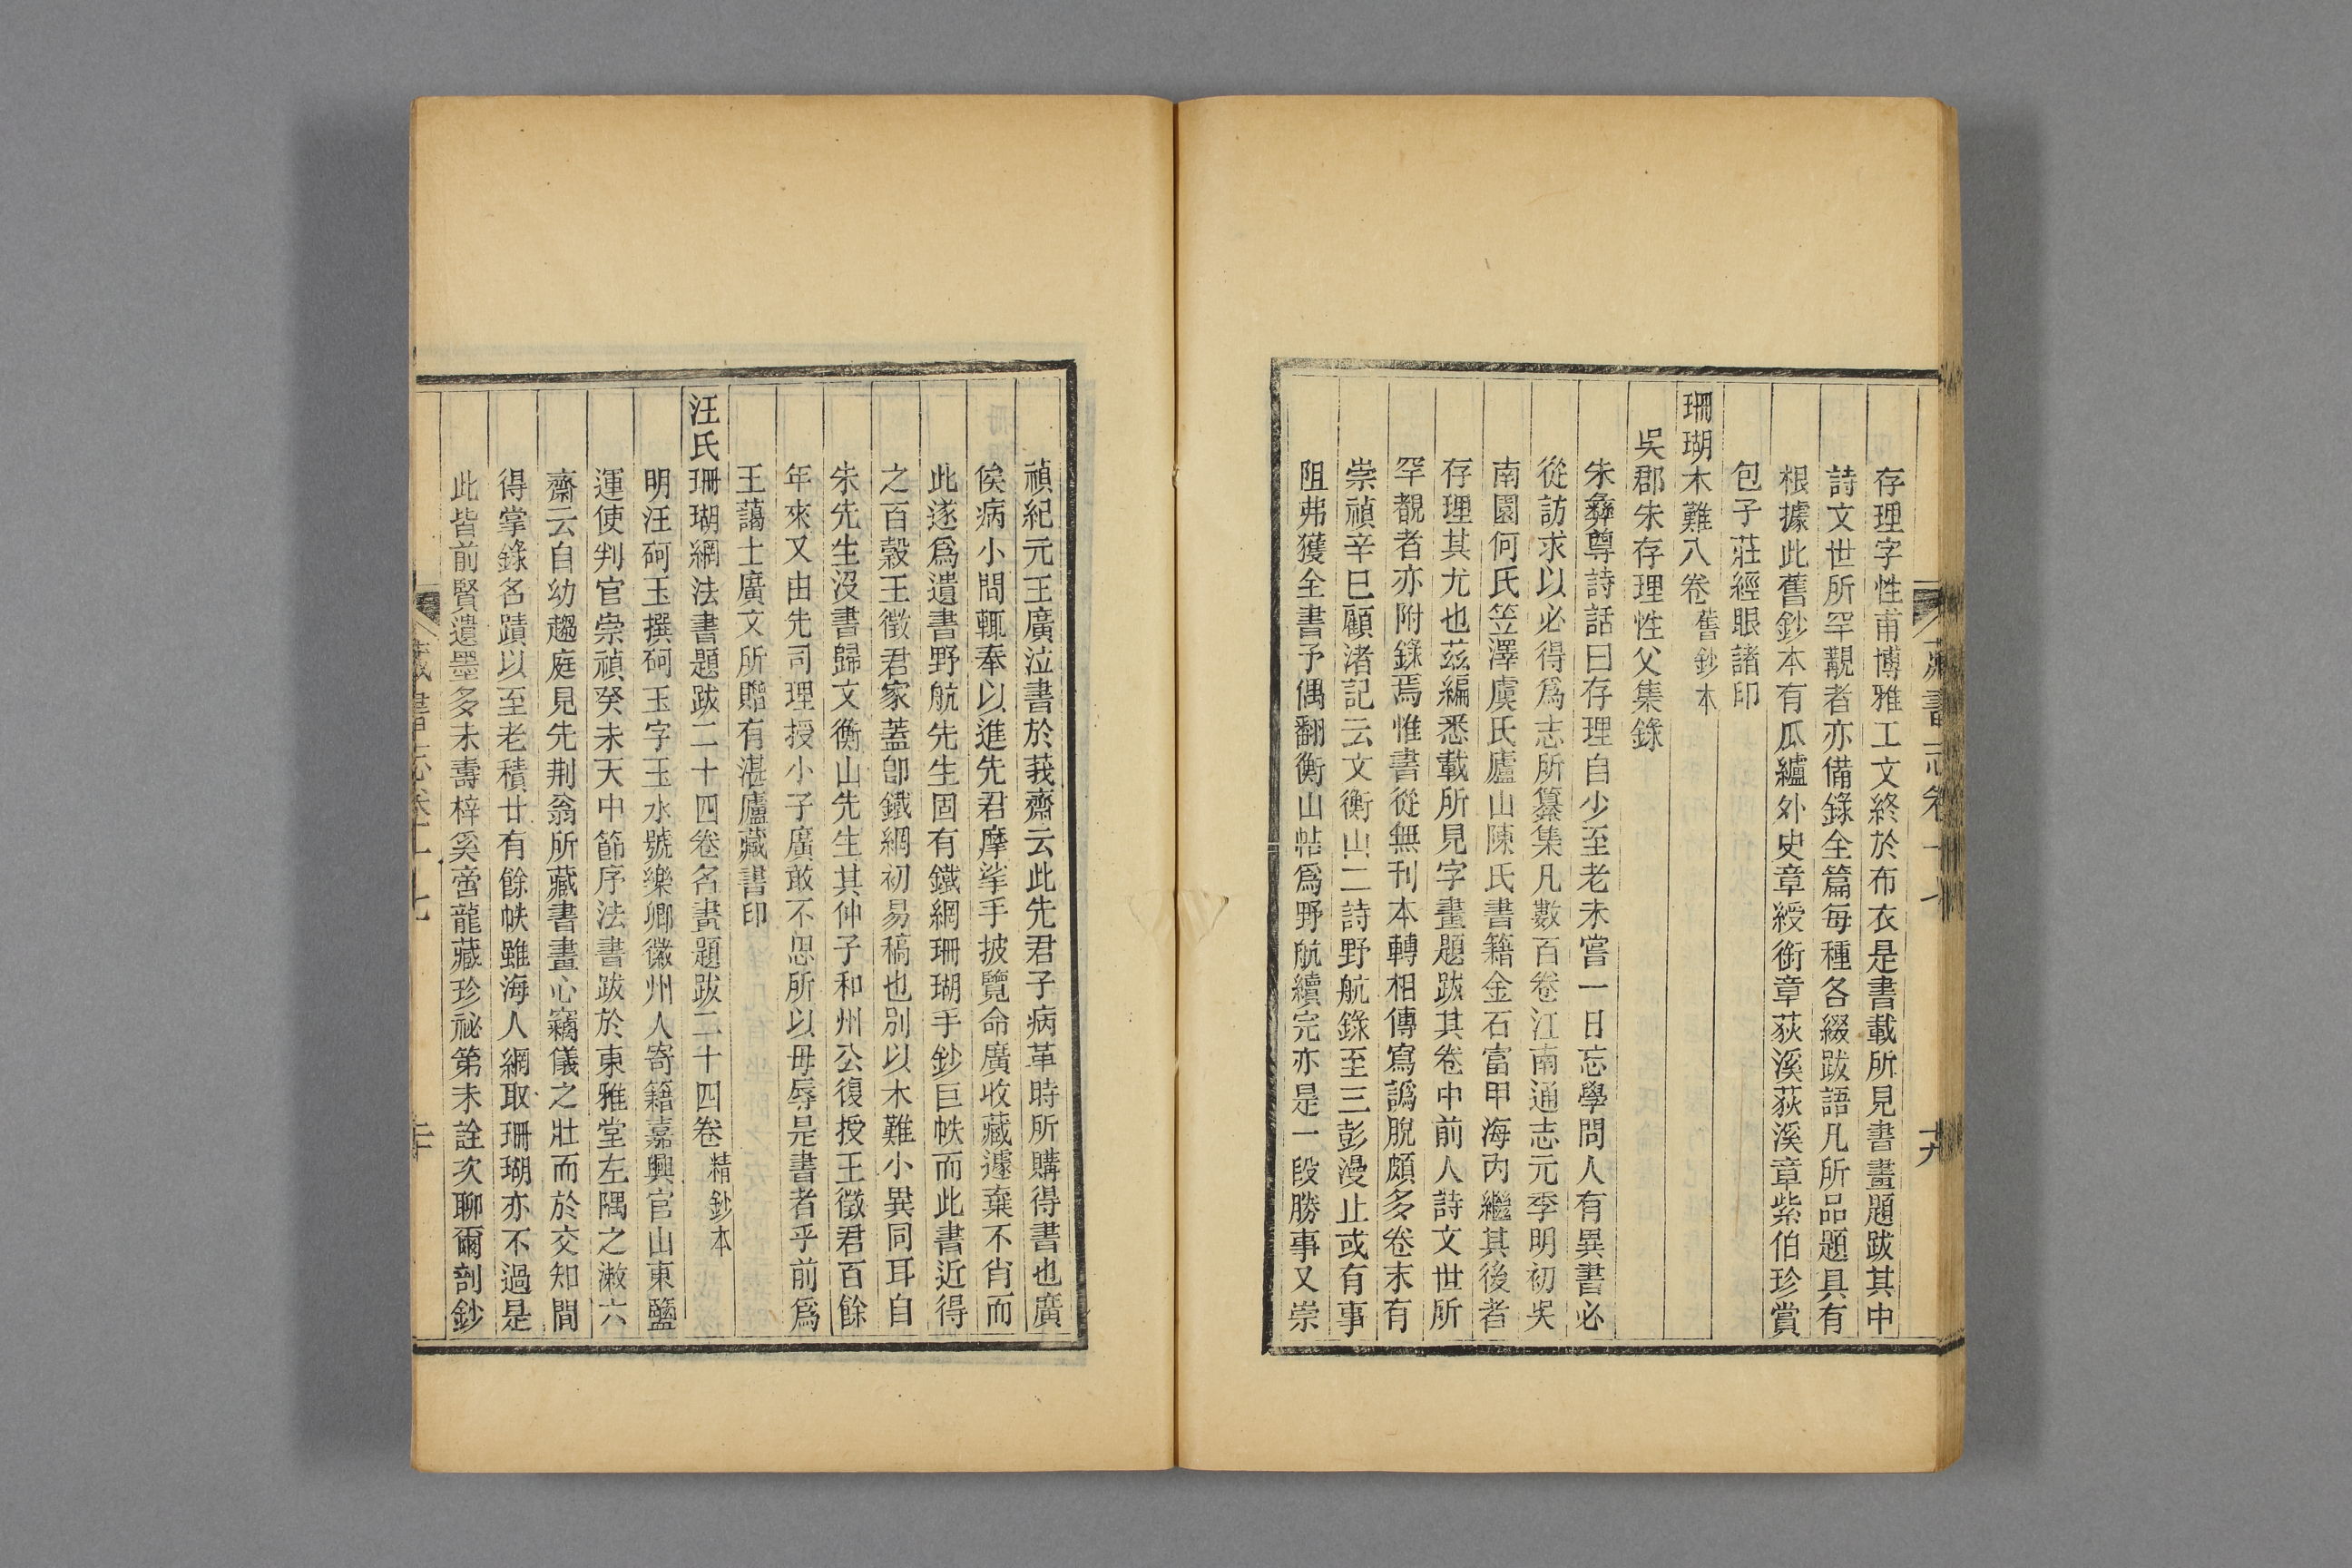 藏書志卷十七
十九
存理字性甫博雅工文終於布衣是書載所見書畫題跋其中
詩文世所罕覯者亦備錄全篇每種各綴跋語凡所品題具有
根據此舊鈔本有瓜纑外史章綬銜章荻溪荻溪章紫伯珍賞
包子莊經眼諸印
珊瑚木難八卷舊鈔本
吳郡朱存理性父集錄
朱彝尊詩話曰存理自少至老未嘗一日忘學問人有異書必
從訪求以必得爲志所纂集凡數百卷江南通志元季明初吳
南園何氏笠澤虞氏廬山陳氏書籍金石富甲海內繼其後者
存理其尤也茲編悉載所見字畫題跋其卷中前人詩文世所
罕覩者亦附錄焉惟書從無刊本轉相傳寫譌脫頗多卷末有
崇禎辛巳顧渚記云文衡山二詩野航錄至三彭漫止或有事
阻弗獲全書予偶翻衡山帖爲野航續完亦是一段勝事又崇
禎紀元王廣泣書於莪齋云此先君子病革時所購得書也廣
俟病小間輒奉以進先君摩挲手披覽命廣收藏遽棄不肖而
此遂爲遺書野航先生固有鐵網珊瑚手鈔巨帙而此書近得
之百穀王徵君家蓋卽鐵網初易稿也別以木難小異同耳自
朱先生沒書歸文衡山先生其仲子和州公復授王徵君百餘
年來又由先司理授小子廣敢不思所以毋辱是書者乎前爲
王藹士廣文所贈有湛廬藏書印
汪氏珊瑚網法書題跋二十四卷名畫題跋二十四卷精鈔本
明汪砢玉撰砢玉字玉水號樂卿徽州人寄籍嘉興官山東鹽
運使判官崇禎癸未天中節序法書跋於東雅堂左隅之漱六
齋云自幼趨庭見先荆翁所藏書畫心竊儀之壯而於交知間
得掌錄名蹟以至老積廿有餘帙雖海人網取珊瑚亦不過是
此皆前賢遺墨多未壽梓奚啻龍藏珍祕第未詮次聊爾剖鈔
藏書志卷十七
二十